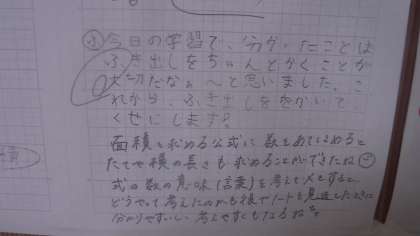 今日の学習で、分かったことは
ふき出しをちゃんとかくことが
大切だなぁ〜と思いました。こ
れから、ふき出しををかいて
くせにします!!
面積を求める公式に数をあてはめると
たてや横の長さも求めることができたね
式の数の意味(言葉)を考えて
どうやって考えたのかも後でノートを見返したときに
分かりやすいし、考えやすくもなるね